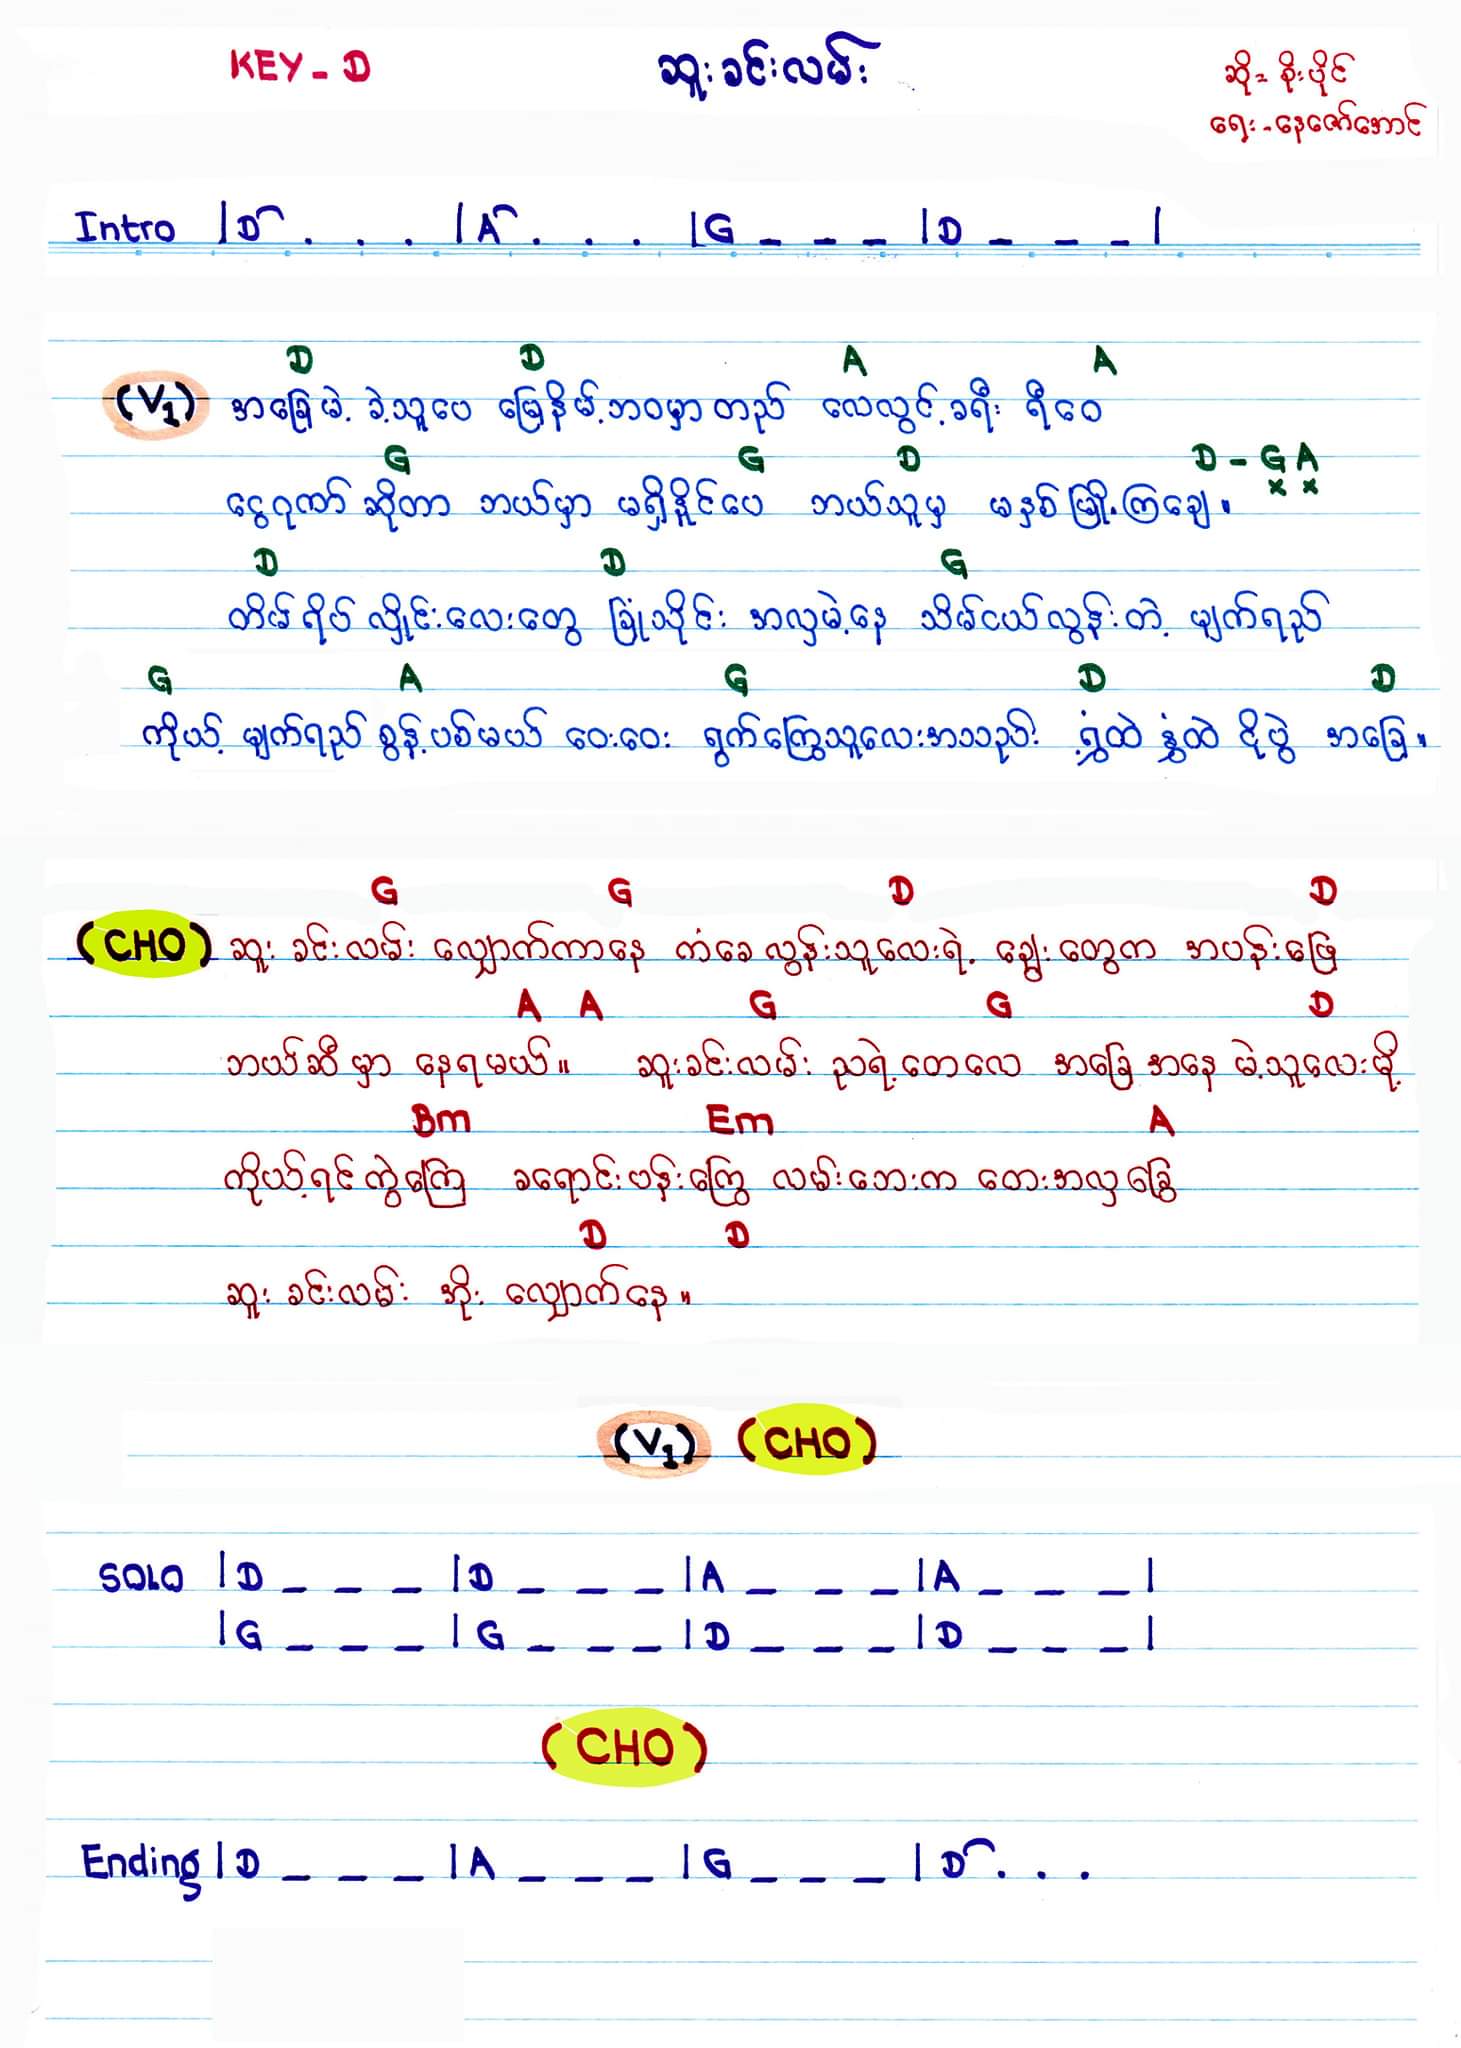 KEY - D
ဆူးခင်းလမ်း
ဆို - စိုးပိုင်
ရေး - နေဇော်အောင်
Intro |D . . . |A . . . |G _ _ _ |D _ _ _ |
D D A A
(V1) အခြေမဲ့ ခဲ့သူပေ မြေနိမ့်ဘဝမှာတည် လေလွင့်ခရီး ရီဝေ
G G D D - G A
x x
ငွေဂုဏ် ဆိုတာ ဘယ်မှာ မရှိနိုင်ပေ ဘယ်သူမှ မနှစ်မြို့ကြချေ။
D D G
တိမ်ရိပ် လှိုင်းလေးတွေ ခြုံသိုင်း အလှမဲ့နေ သိမ်ငယ်လွန်းတဲ့ မျက်ရည်
G A G D D
ကိုယ့် မျက်ရည် စွန့်ပစ်မယ် ဝေးဝေး ရွက်ကြွေသူလေးအသည်း ရွှံ့ထဲ နွံထဲ ငိုပွဲ အခြေ။
G G D D
(CHO) ဆူး ခင်းလမ်း လျှောက်ကာနေ ကံခေ လွန်းသူလေးရဲ့ ချွေးတွေက အပန်းဖြေ
A A G G D
ဘယ်ဆီ မှာ နေရမယ်။ ဆူးခင်းလမ်း ညရဲ့တေလေ အခြေ အနေ မဲ့သူလေးမို့
Bm Em A
ကိုယ့်ရင် ကွဲကြေ ခရောင်းပန်းကြွေ လမ်းဘေးက တေးအလှခြွေ
D D
ဆူး ခင်းလမ်း အိုး လျှောက်နေ။
(V1) (CHO)
SOLO |D _ _ _ |D _ _ _ |A _ _ _ |A _ _ _ |
|G _ _ _ |G _ _ _ |D _ _ _ |D _ _ _ |
(CHO)
Ending |D _ _ _ |A _ _ _ |G _ _ _ |D . . .